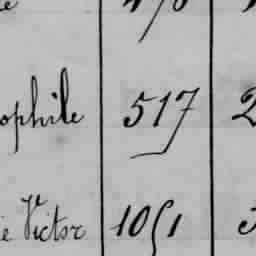 ophile 517 2
ie Victor 1051 3